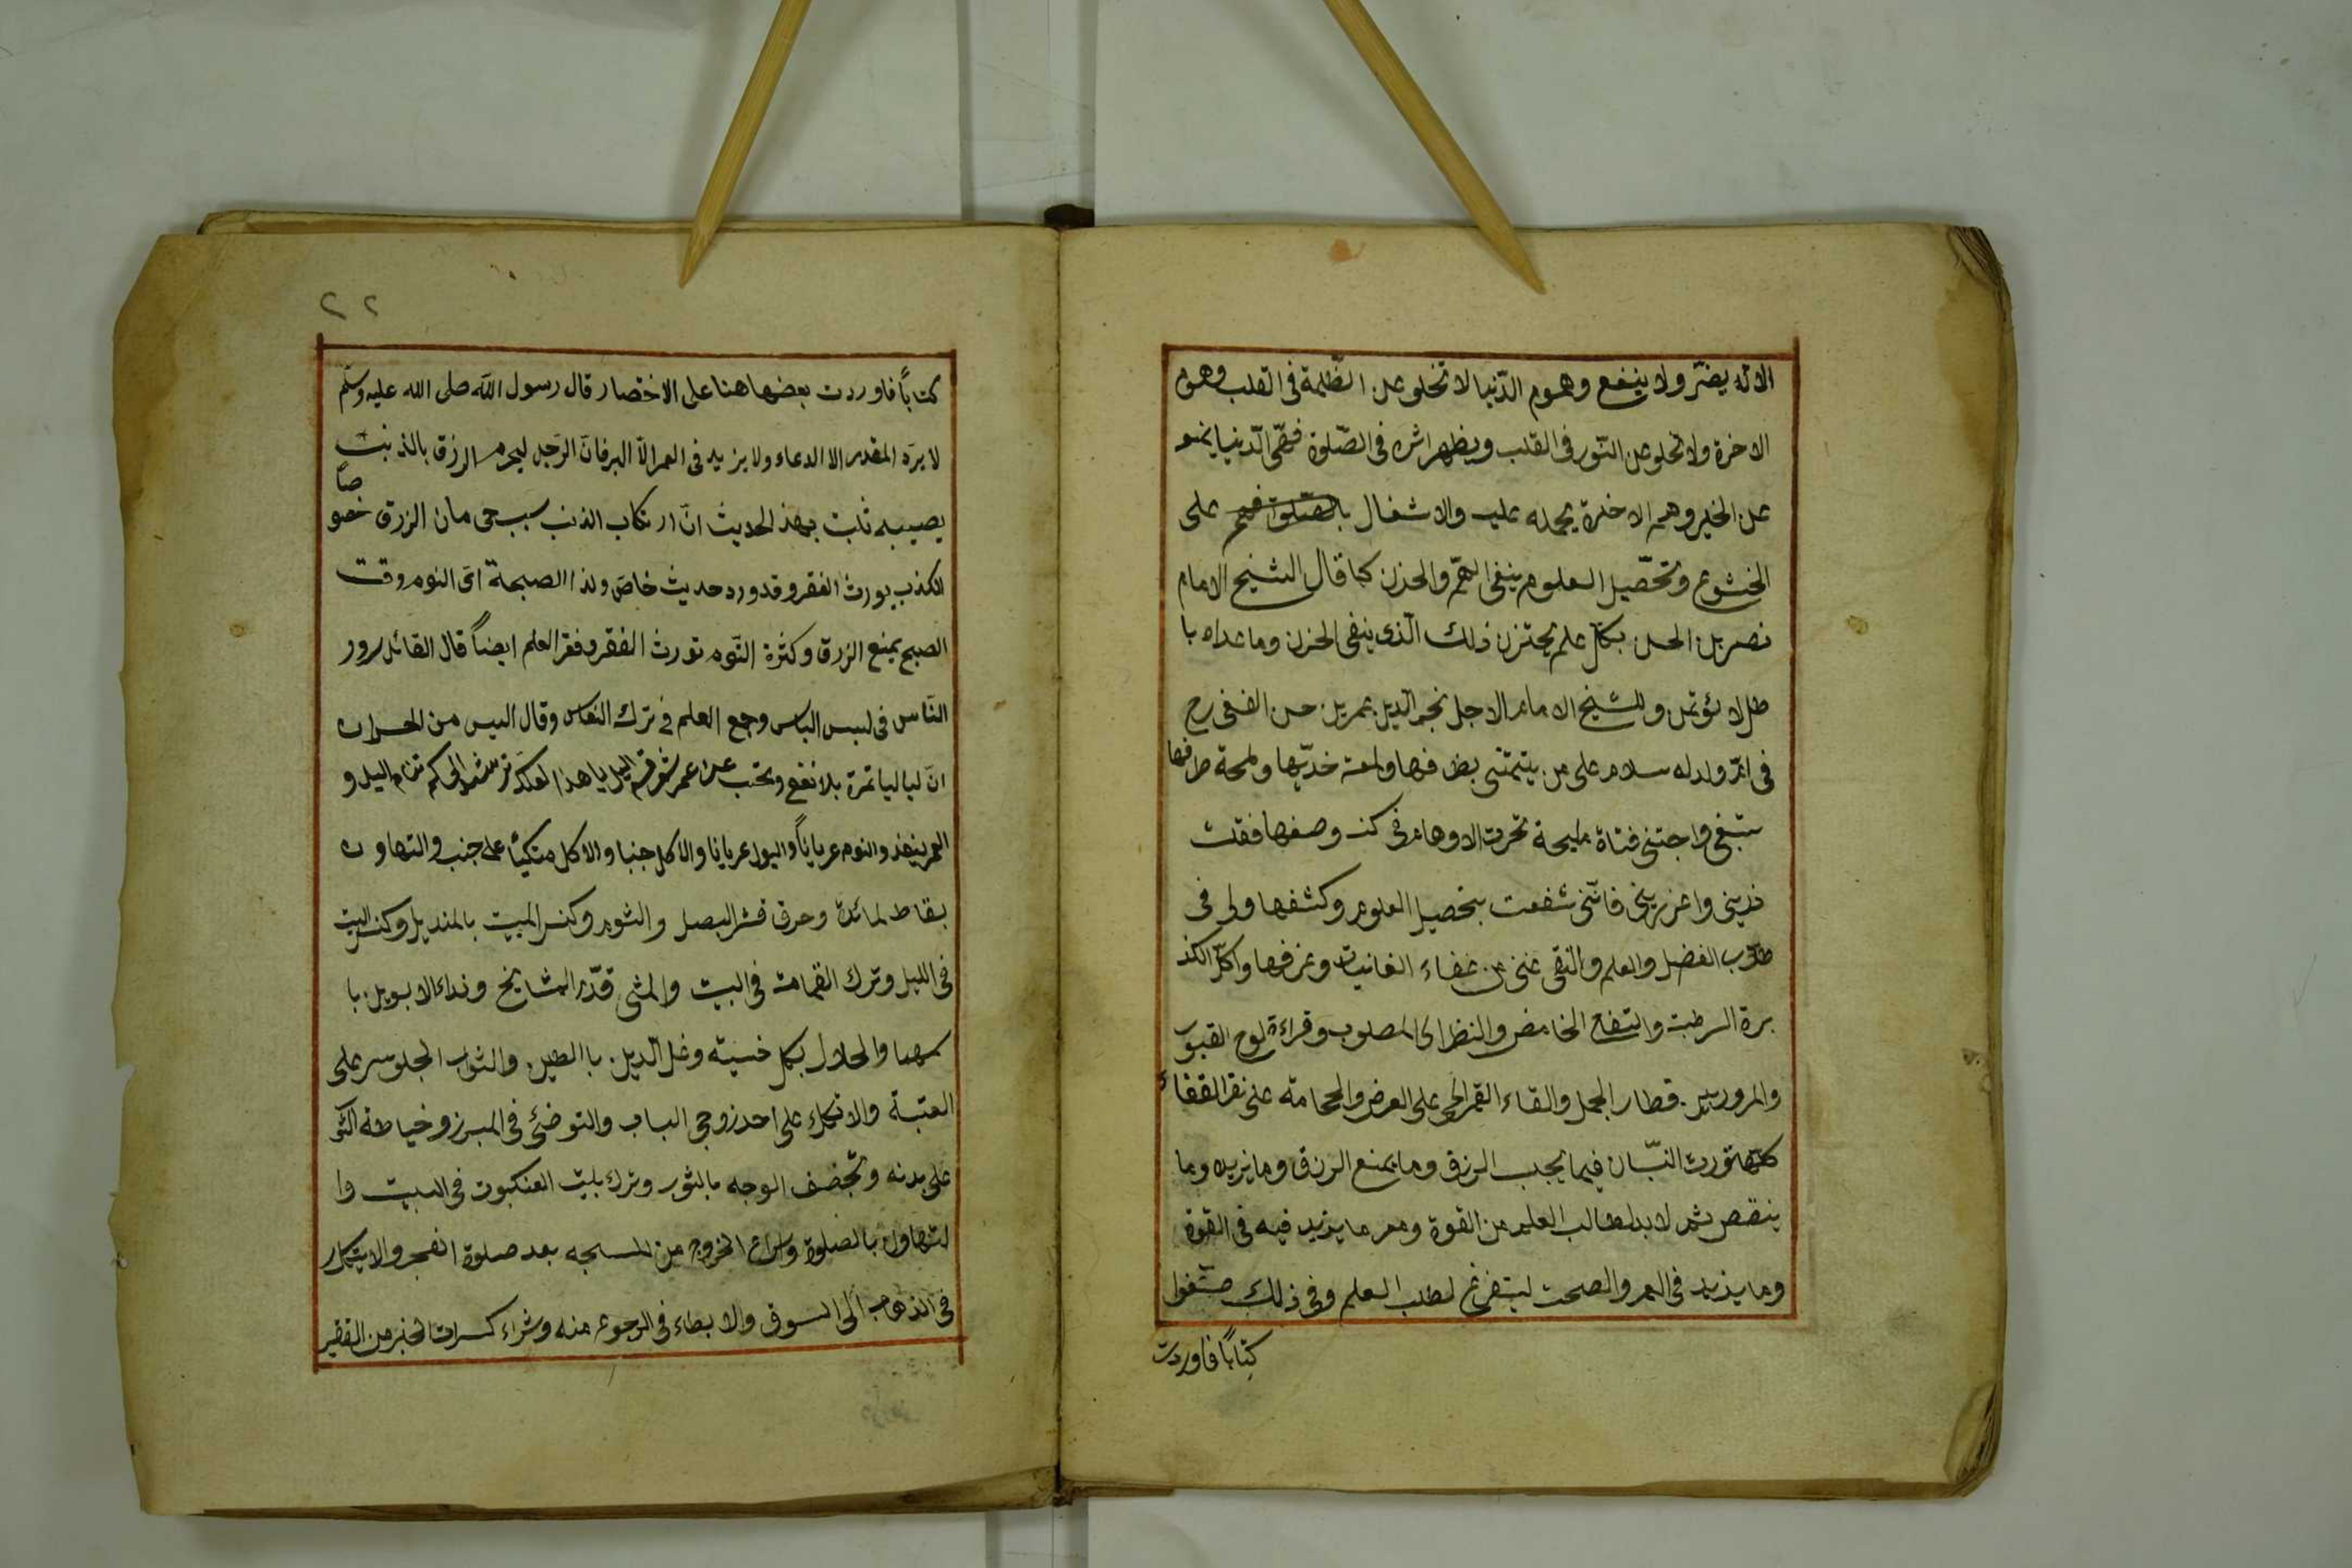 الانه يضرّ ولا ينفع وهموم الدّنيا لا تخلو عن الظّلمة فى القلب وهموم
الاخرة ولا تخلو عن النّور فى القلب ويظهر اثره فى الصّلوة فهمّ الدّنيا يمنعه
عن الخير وهمّ الاخرة يحمله عليه والاشغال بالصّلوة على
الخشوع وتحصيل العلوم ينفى الهمّ والحزن كما قال الشيخ الامام
نصر بن الحسن بكلّ علم يحتزن ذلك الّذى ينفى الحزن وما عداه با
طل لا يؤتمن وللشيخ الامام الاجل نجم الدين عمر بن النسفى رح
فى امّ ولد له سلام على من يتمتنى بظرفها ولمعة خدّيها ولمحة طرفها
ستبغى واجتنى فتاة مليحة تحرت الاوهام فى كنه وصفها فقلت
ذرينى واعزرينى فانّنى شغفت بتحصيل العلوم وكشفها ولى فى
طلاب الفضل والعلم والتقى غنى عن غناء الغانيات وعرفها واكل الكذ
برة الرطبة والتفاح الحامض والنظر الى المصلوب وقراءة لوح القبور
والمرور بين قطار الجمل والقاء القمل الحى على الارض والحجامة على نقر القفاء
كلّها تورث النسيان فيما يجب الرزق وما يمنع الرزق وما يزيد وما
ينقص ثم لا بد لطالب العلم من القوة ومعرفة ما يزيد فيه فى القوة
وما يزيد فى العمر والصحت ليتفرغ لطلب العلم وفى ذلك صنّفوا
كتابًا فاوردت
٢٢
كتابًا فاوردت بعضها هنا على الاختصار قال رسول اللّه صلى الله عليه وسلّم
لا يردّ المقدر الا الدعاء ولا يزيد فى العمر الّا البر فانّ الرّجل ليحرم الرزق بالذنب
يصيبه ثبت بهذ الحديث انّ ارتكاب الذنب سبب حرمان الرزق خصو
صًا
الكذب يورث الفقر وقد ورد حديث خاصّ ولذا الصبحة اى النوم وقت
الصبح يمنع الرزق وكثرة النّوم تورث الفقر وفقر العلم ايضاً قال القائل سرور
النّاس فى لبس اللباس وجمع العلم فى ترك النعاس وقال اليس من الخسران
انّ لياليا تمرة بلا نفع وتحسب من عمر اليل يا هذا لعلّك ترشد الى كم تنام اليل و
العمر ينفذ والنوم عرياناً والبول عريانا والاكل جنبا والاكل متكيأ على جنب والتهاون
بقاط لمائدة وحرق قشر البصل والثوم وكنس البيت بالمنديل وكنس البيت
فى الليل وترك القمامة فى البيت والمشى قدّر المشايخ ونداء الابوين با
سمهما والخلال بكل خسيته وغسل اليدين با الطين والتراب الجلوس على
العتبة والاتكاء على احد زوجى الباب والتوضى فى المبرز وخياطة الثو
على بدنه وتجفيف الوجه بالثور وترك بليت العنكبوت فى البيت وا
لتهاون بالصلوة واسراع الخروج من المسجد بعد صلوة الفجر والابتكار
فى الذهاب الى السوق والابطاء فى الرجوع منه وشراء كسرات الخبز من الفقير